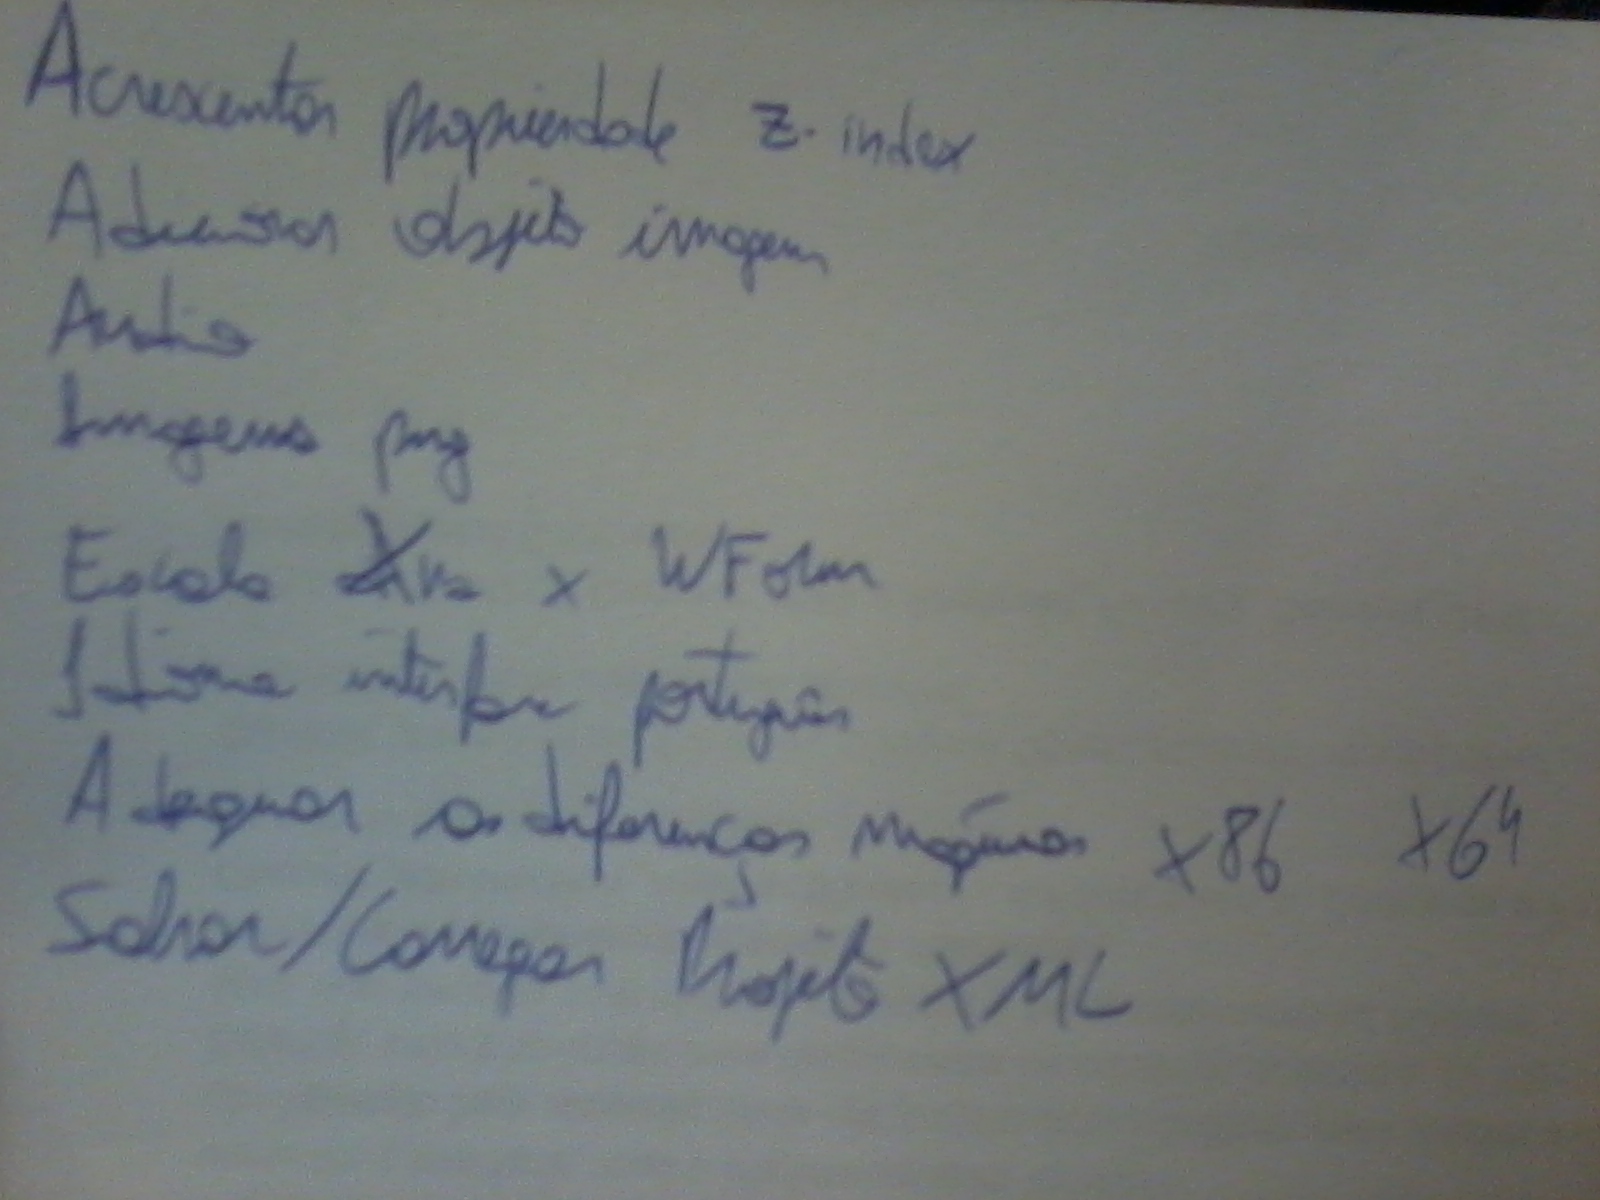 Acrescentar propriedade z-index
Adicionar objeto imagem
Audio
Imagens png
Escala x WForm
Idioma interface português
Adequar as diferenças máquinas x86 x64
Salvar/Carregar Projeto XML